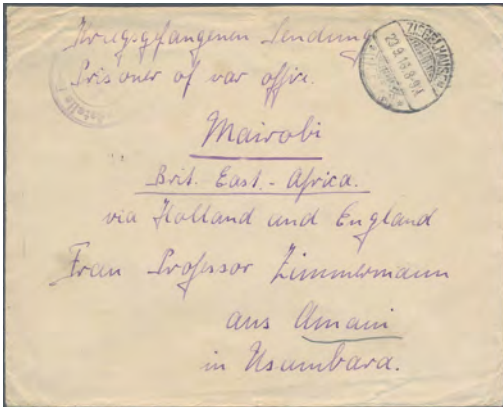 Kriegsgefangenen Sendung
Prisoner of war office.
Nairobi
Brit. East.- Africa.
via Holland and England
Frau Professor Zimmermann
aus Amani
in Usambara.
ZIEGELHAUSEN
29.9.16.8-9V.